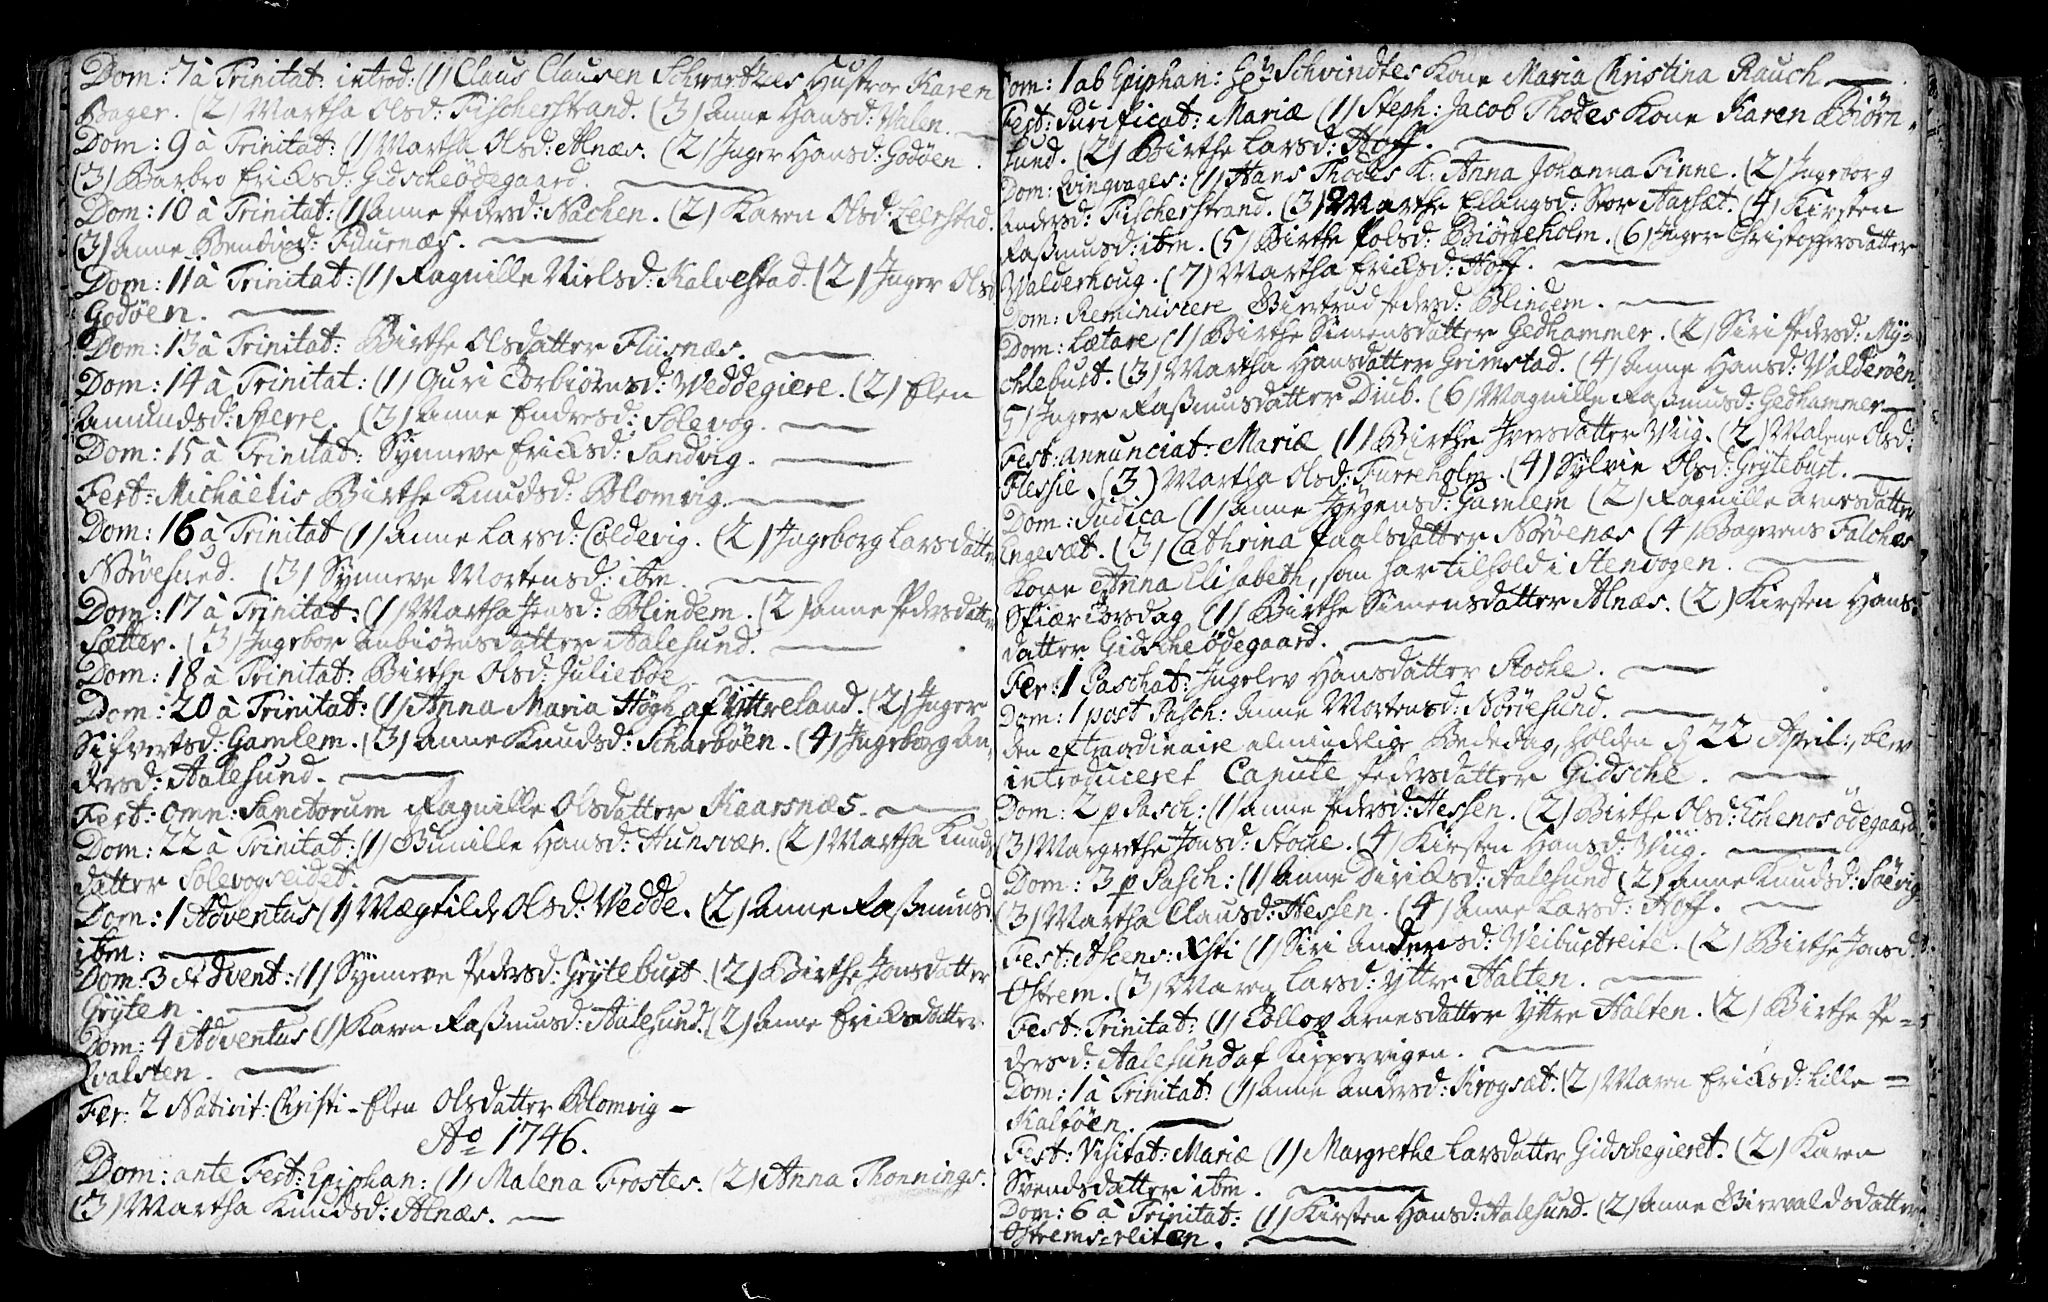 Dom: 7 à Trinitat: introd: (1) Claus Clausen Schwartzes Hustroe Karen
Bager. (2) Martha Olsd: Fischerstrand. (3) Anne Hansd: Valen.
Dom: 9 à Trinitat: (1) Martha Olsd: Alnæs. (2) Inger Hansd: Godöen.
(3) Barbro Ericksd: Gidscheödegaard.
Dom: 10 à Trinitat: (1) Anne Pedersd: Nachen. (2) Karen Olsd: Leerstad.
(3) Anne Bendixd: Fduurnæs.
Dom: 11 à Trinitat: (1) Ragnille Nielsd: Kalvestad. (2) Inger Olsd
Godöen.
Dom: 13 à Trinitat: Birthe Olsdatter Fliisnæs.
Dom: 14 à Trinitat: (1) Guri Torbiörnsd: Veddegiere. (2) Elen
Amundsd: Sperre. (3) Anne Endresd: Solevog.
Dom: 15 à Trinitat: Synneve Ericksd: Sandvig.
Fest: Michaelis Birthe Knudsd: Blomvig.
Dom: 16 à Trinitat (1) Anne Larsd: Coldevig. (2) Ingeborg Larsdatter
Nörvesund. (3) Synneve Mortensd: ibm.
Dom: 17 à Trinitat: (1) Martha Jonsd: Blindem. (2) Anne Pedersdatter
Sætter. (3) Ingebor Anbiörnsdatter Aalesund.
Dom: 18 à Trinitat: Birthe Olsd: Julieböe.
Dom: 20 à Trinitat: (1) Anna Maria Högh af Yttreland. (2) Inger
Sifvertsd: Gamlem. (3) Anne Knudsd: Scharböen. (4) Ingeborg An,
dersd: Aalesund.
Fest: omn: Sanctorum Ragnille Olsdatter Kaarsnæs.
Dom: 22 à Trinitat: (1) Gunille Hansd: Hunsvær. (2) Martha Knuds
datter Solevogseidet.
Dom: 1 Adventus (1) Mægtilde Olsd: Vedde. (2) Anne Raßmusd:
ibm:
Dom: 3 Advent: (1) Synneve Pedersd: Grytebust. (2) Birthe Jonsdatter
Gryten.
Dom: 4 Adventus (1) Karen Raßmusd: Aalesund. (2) Anne Ericksdatter
Qvalsten.
Fer: 2 Nativit: Christi - Elen Olsdatter Blomvig -
Ao 1746.
Dom: ante Fest: Epiphan: (1) Malena Frostes. (2) Anna Thonnings.
(3) Martha Knudsd: Alnæs.
Dom: 1 ab Epiphan: Schvindtes Kone Maria Christina Rauch
Fest: Purificat: Mariæ (1) Steph: Jacob Thodes Kone Karen Biörn,
sund. (2) Birthe Larsd: Hoff.
Dom: Qvinqvages: (1) Hans Thodes K: Anna Johanna Finne. (2) Ingeborg
Andersd: Fischerstrand. (3) Marthe Ellingsd: Stor Aarsæt. (4) Kirsten
Raßmusd: ibm. (5) Birthe Polsd: Biörgeholm. (6) Inger Christophersdatter
Valderhoug. (7) Martha Ericksd: Hoff.
Dom: Reminiscere Giertrud Pedersd: Blindem.
Dom: Lætare (1) Birthe Simensdatter Gedhammer. (2) Siri Pedersd: My=
chlebust. (3) Martha Hansdatter Grimstad. (4) Anne Hansd: Valderöen
5) Inger Raßmusdatter Diub. (6) Magnille Raßmusd: Gedhammer
Fest: annunciat: Mariæ (1) Birthe Iversdatter Viig. (2) Malene Olsd:
Flessie. (3) Martha Olsd: Furreholm. (4) Sylvie Olsd: Grytebust.
Dom: Judica (1) Anne Jörgensd: Gamlem (2) Ragnille Arnesdatter
Engesæt. (3) Cathrina Paalsdatter Nörvenæs (4) Bagerens Falches
Kone Anna Elisabeth, som har tilhold i Stenvogen.
Skiærtorsdag (1) Birthe Simensdatter Alnæs. (2) Kirsten Hans=
datter Gidscheödegaard.
Fer: 1 Paschat: Ingelev Hansdatter Stocke.
Dom: 1 post Pasch: Anne Mortensd: Nörvesund.
den extraordinaire almindelige Bededag, holden d 22 April:, blev
introduceret Capute Pedersdatter Gidsche.
Dom: 2 p Pasch: (1) Anne Pedersd: Hessen. (2) Birthe Olsd: Echenosödegaard
(3) Margrethe Jonsd: Stocke. (4) Kirsten Hansd: Viig.
Dom: 3 p Pasch: (1) Anne Diricksd: Aalesund (2) Anne Knudsd: Söevig
(3) Martha Clausd: Hessen. (4) Anne Larsd: Hoff.
Fest: Ascens: Xsti (1) Siri Andersd: Veibustreite. (2) Birthe Jonsd:
Östrem. (3) Maren Larsd: Yttre Halten.
Fest: Trinitat: (1) Töllov Arnesdatter Yttre Halten. (2) Birthe Pe=
dersd: Aalesund af Kippervigen.
Dom: 1 à Trinitat: (1) Anne Andersd: Krogsæt. (2) Maren Ericksd: Lille=
Kalföen.
Fest: Visitat: Mariæ (1) Margrethe Larsdatter Gidschegieret. (2) Karen
Svendsdatter ibm.
Dom: 6 à Trinitat: (1) Kirsten Hansd: Aalesund. (2) Anne Biervaldsdatter
Östrems=reiten.